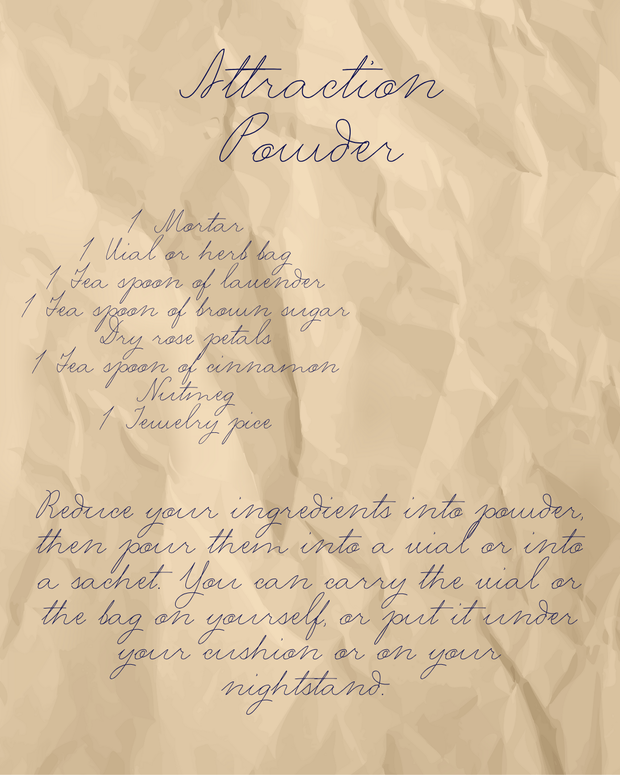 Attraction
Powder
1 Mortar
1 Vial or herb bag
1 Tea spoon of lavender
1 Tea spoon of brown sugar
Dry rose petals
1 Tea spoon of cinnamon
Nutmeg
1 Jewelry pice
Reduce your ingredients into powder,
then pour them into a vial or into
a sachet. You can carry the vial or
the bag on yourself, or put it under
your cushion or on your
nightstand.